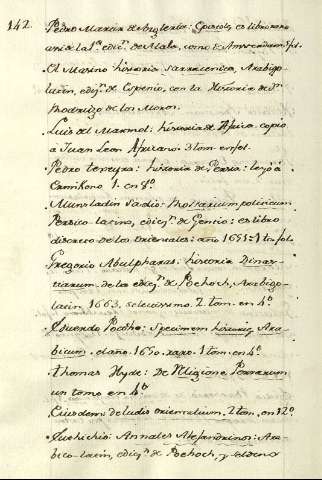 142.
Pedro Martir de Angleria: Epistolę, es libro raro
asi de la 1ª. edicⁿ. de Alcala, como de Amsterdam 1 fol.
El Macino historia Sarracenica, Arabigo
latin, edicⁿ. de Erpenio, con la Historia de Dⁿ.
Rhodrigo de los Moros.
Luis del Marmol: historia de Africa copió
a Juan Leon Africano. 3 tom. en fol.
Pedro tereyra: historia de Persia: leyó à
Ermikono 1. en 8º.
Musladin Sadio: Rosarium politicum
Persico-latino, edicⁿ. de Gentio: es libro
discreto de los Orientales: año 1651=1 tn fol.
Gregorio Abulpharas: historia Dinas-
tiarum. de la edicⁿ. de Pochoch, Arabigo-
latin 1663. selectissimo. 2 tom. en 4º.
Eduardo Pocho: Specimen historię Ara-
bicum. el año. 1650. raro. 1 tom. en 4º.
Thomas Hyde: De Religione Persarum
un tomo en 4º
Eiusdem de ludis orientalium, 2 tom. en 12º.
Eutichio: Annales Alejandrinos: Ara-
bico-latin, edicⁿ. de Pochoch, y Seldeno